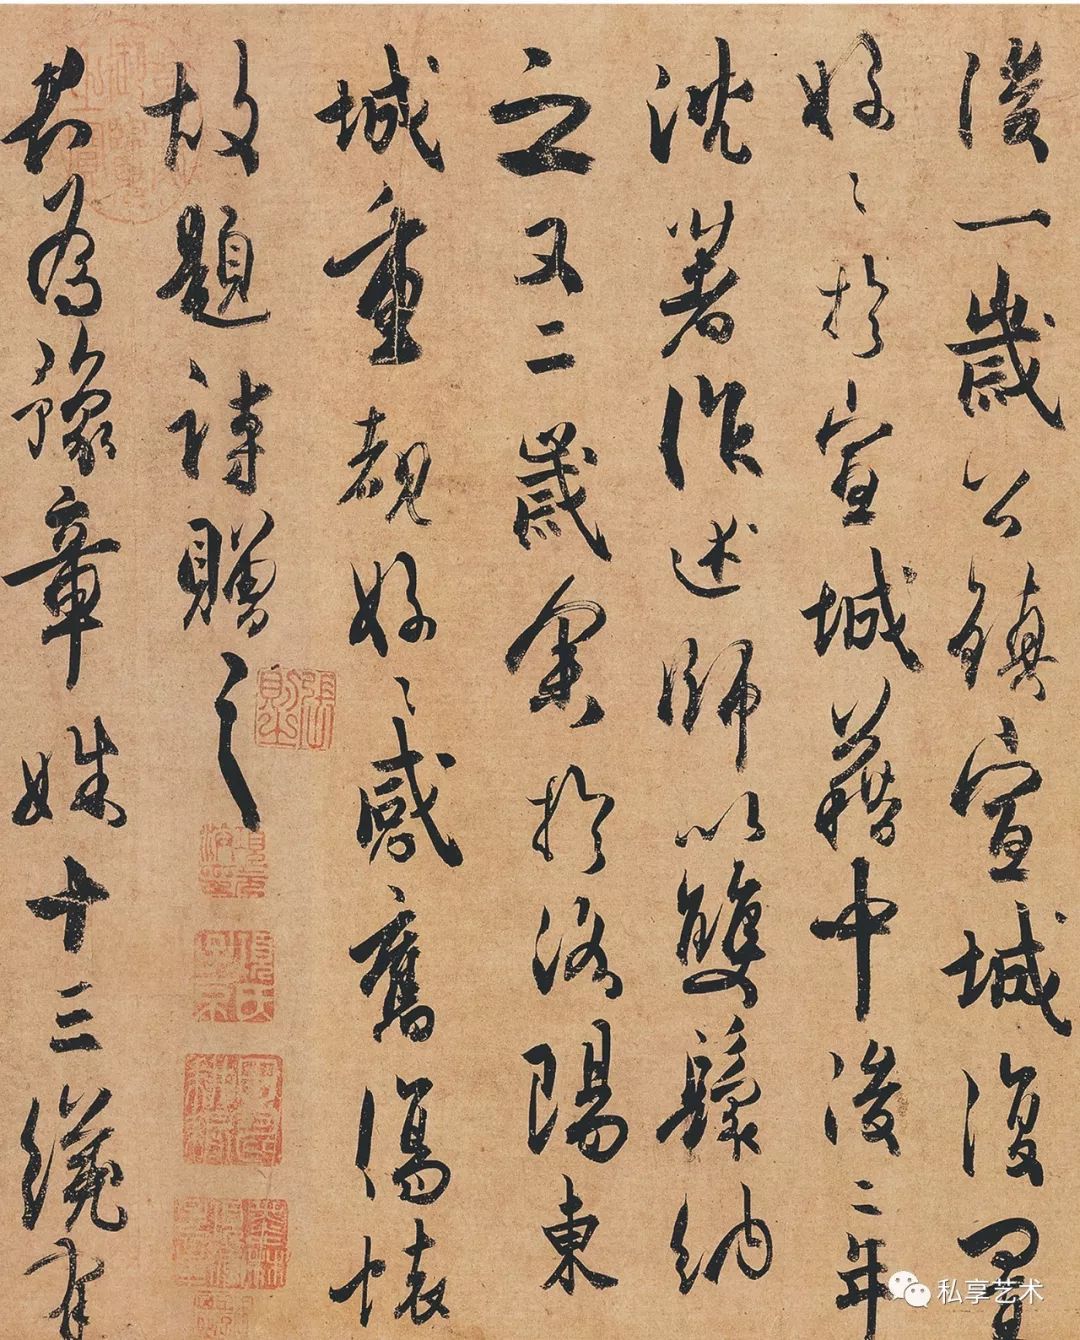 後一歲公鎮宣城復置
好〻於宣城籍中後二年
沈著作述師以雙鬟納
之又二歲余於洛陽東
城重覩好〻感舊傷懷
故題詩贈之
君為豫章姝十三纔有
張則之
私享艺术